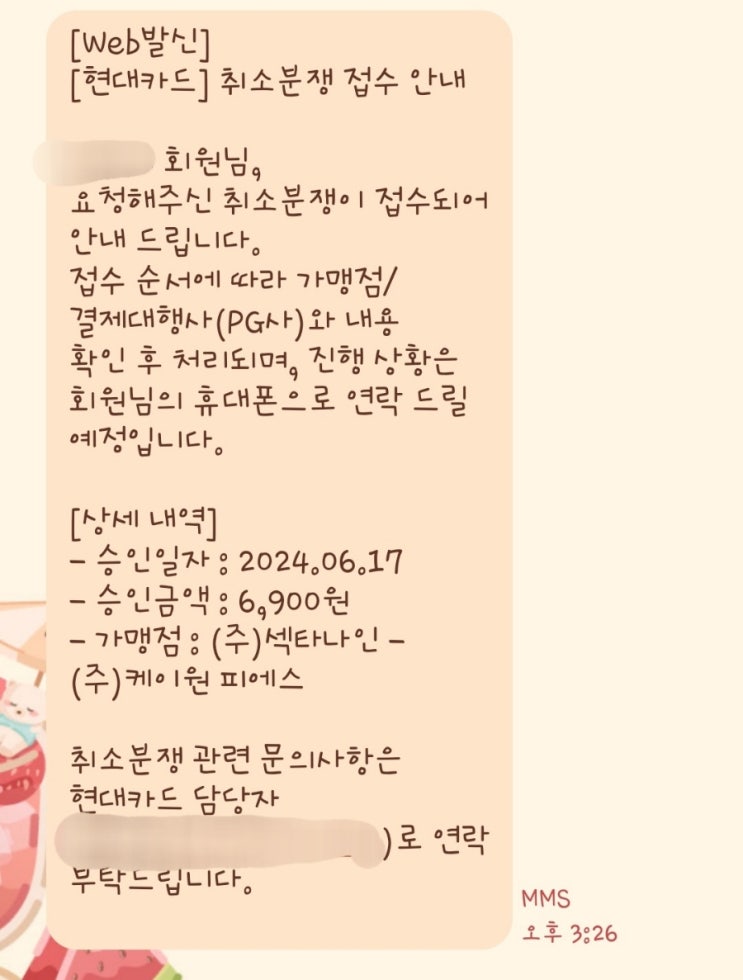 [Web발신]
[현대카드] 취소분쟁 접수 안내
회원님,
요청해주신 취소분쟁이 접수되어
안내 드립니다.
접수 순서에 따라 가맹점/
결제대행사(PG사)와 내용
확인 후 처리되며, 진행 상황은
회원님의 휴대폰으로 연락 드릴
예정입니다.
[상세 내역]
- 승인일자 : 2024.06.17
- 승인금액 : 6,900원
- 가맹점 : (주)섹타나인 -
(주)케이원 피에스
취소분쟁 관련 문의사항은
현대카드 담당자
)로 연락
부탁드립니다.
MMS
오후 3:26